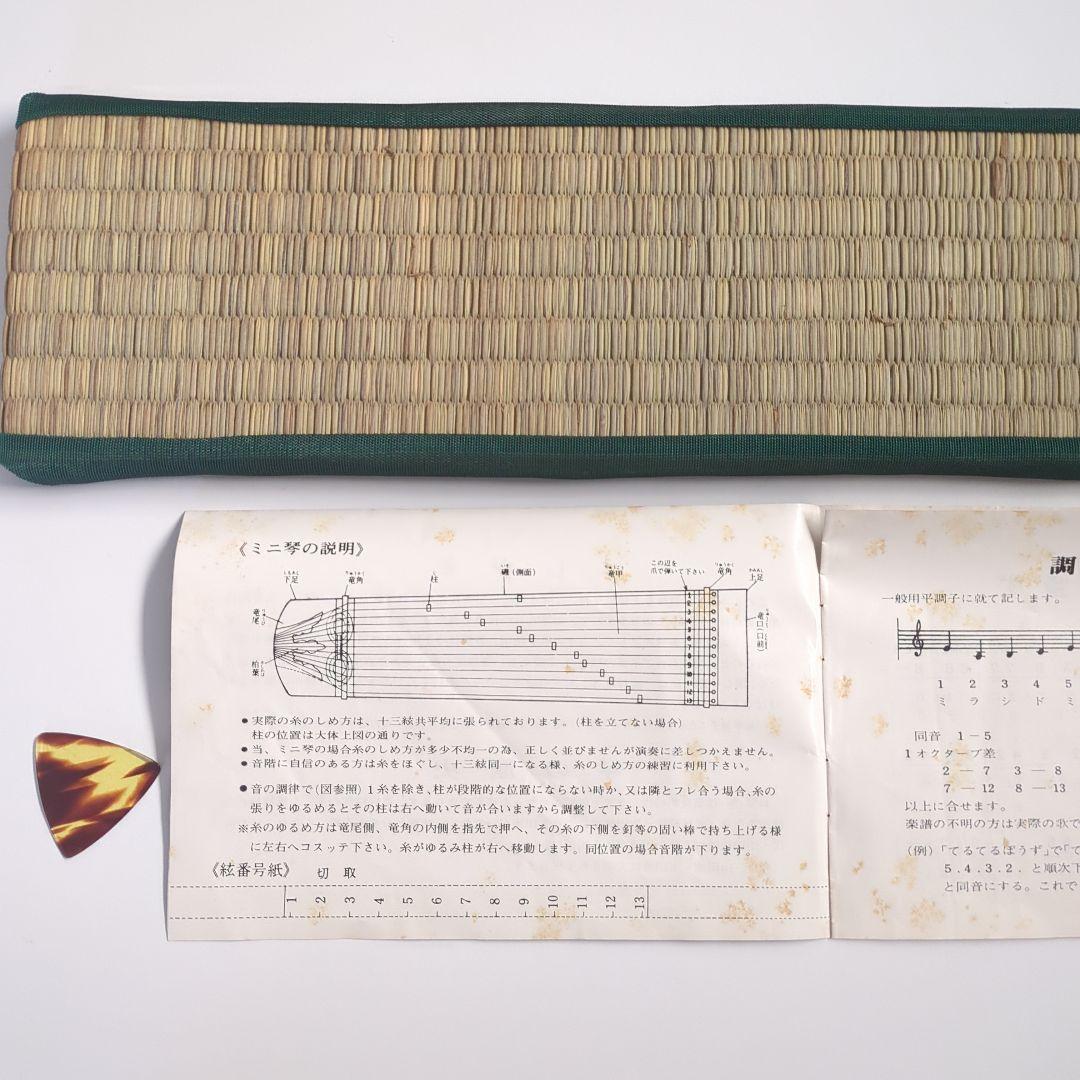 《ミニ琴の説明》
しもあし
下足
りゅうかく
竜角
じ
柱
いそ
磯(側面)
りゅうこう
竜甲
この辺を
爪で弾いて下さい
りゅうかく
竜角
かみあし
上足
竜尾
柏葉
竜口(口前)
1
2
3
4
5
6
7
8
9
10
11
12
13
●実際の糸のしめ方は、十三絃共平均に張られております。(柱を立てない場合)
柱の位置は大体上図の通りです。
●当、ミニ琴の場合糸のしめ方が多少不均一の為、正しく並びませんが演奏に差しつかえません。
●音階に自信のある方は糸をほぐし、十三絃同一になる様、糸のしめ方の練習に利用下さい。
●音の調律で(図参照)1糸を除き、柱が段階的な位置にならない時か、又は隣とフレ合う場合、糸の
張りをゆるめるとその柱は右へ動いて音が合いますから調整して下さい。
※糸のゆるめ方は竜尾側、竜角の内側を指先で押へ、その糸の下側を釘等の固い棒で持ち上げる様
に左右へコスッテ下さい。糸がゆるみ柱が右へ移動します。同位置の場合音階が下ります。
《絃番号紙》 切取
1 2 3 4 5 6 7 8 9 10 11 12 13
調
一般用平調子に就て記します。
1 2 3 4 5
ミ ラ シ ド ミ
同音 1-5
1オクターブ差
2-7 3-8
7-12 8-13
以上に合せます。
楽譜の不明の方は実際の歌で
(例)「てるてるぼうず」で「て
5.4.3.2. と順次下
と同音にする。これで